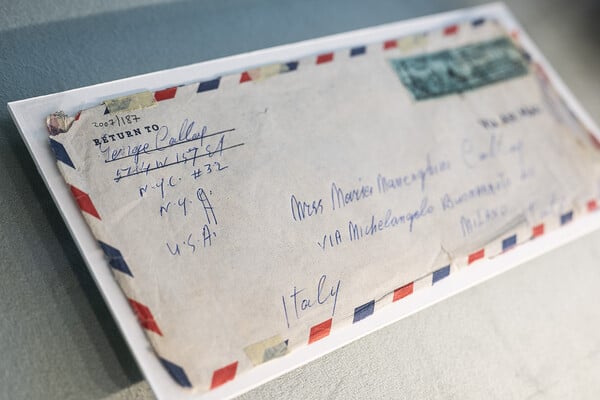 2007/187
RETURN TO
George Callas
W 157 St
N.Y.C. #32
N.Y.
U.S.A.
VIA AIR MAIL
Mrss Maria Meneghini Callas
VIA Michelangelo Buonarroti
MILANO
Italy